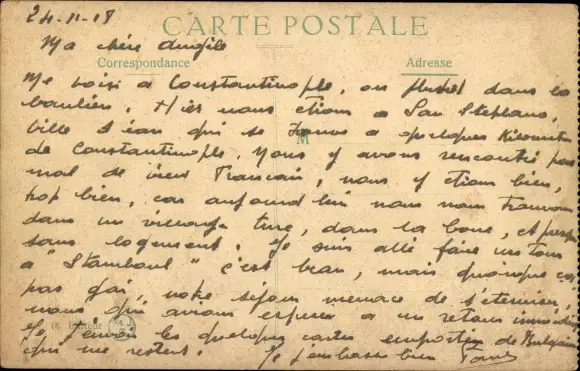 24-11-18
CARTE POSTALE
Ma chère
Correspondance
Adresse
Me voici à Constantinople, ou plutôt dans la
banlieue. Hier nous étions a San Stephano,
ville d'eau qui se trouve a quelques kilomètres
de Constantinople. Nous y avons rencontré pas
mal de vieux Francais, nous y étions bien,
trop bien, car aujourd'hui nous nous trouvons
dans un village turc, dans la boue, et presque
sans logement. Je suis allé faire un tour
a "Stamboul" c'est beau, mais quoique
pas gai, notre séjour menace de s'éterniser,
nous qui avions espéré a un retour immédiat
Je les quelques cartes de Bulgarie
qui me restent. Je t'embrasse bien